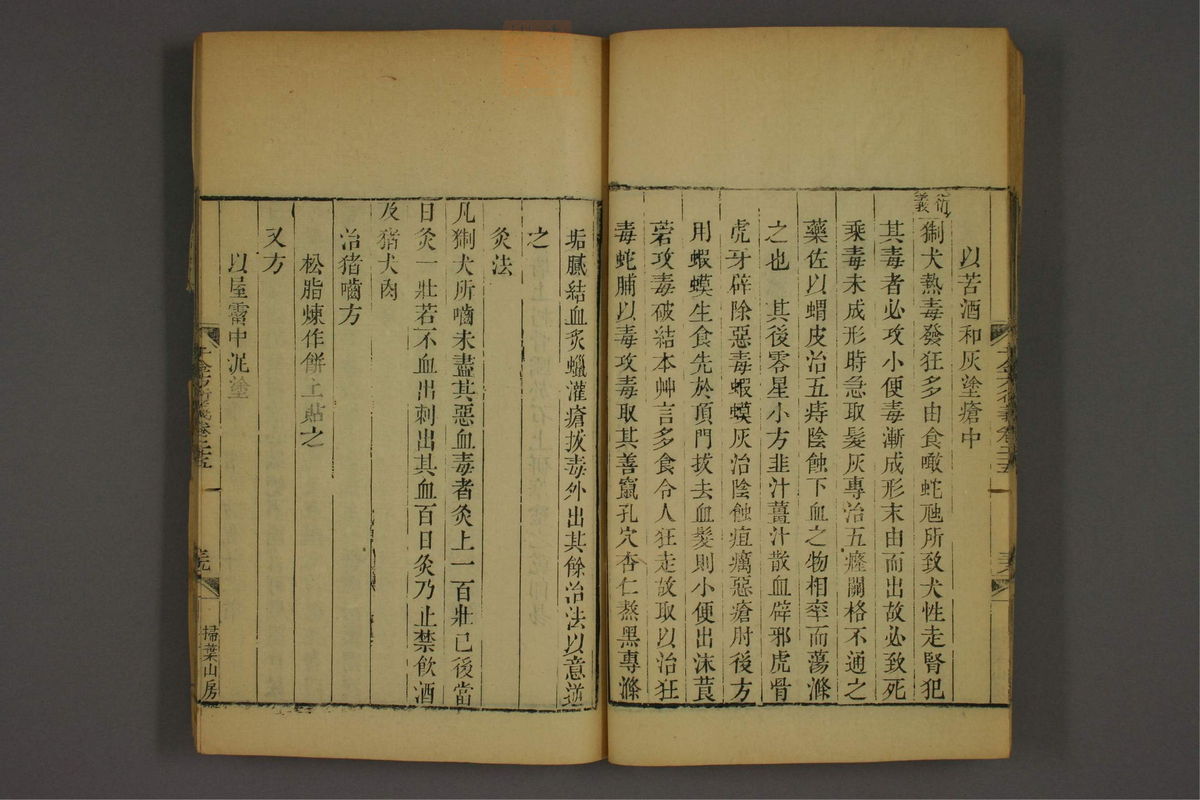 以苦酒和灰塗瘡中
衍義
猘犬熱毒發狂多由食噉蛇虺所致犬性走腎犯
其毒者必攻小便毒漸成形末由而出故必致死
乘毒未成形時急取髮灰專治五癃關格不通之
藥佐以蝟皮治五痔陰蝕下血之物相率而蕩滌
之也 其後零星小方韭汁薑汁散血辟邪虎骨
虎牙辟除惡毒蝦蟆灰治陰蝕疽癘惡瘡肘後方
用蝦蟆生食先於頂門拔去血髮則小便出沫莨
菪攻毒破結本艸言多食令人狂走故取以治狂
毒蛇脯以毒攻毒取其善竄孔穴杏仁熬黑專滌
垢膩結血炙蠟灌瘡拔毒外出其餘治法以意逆
之
灸法
凡猘犬所嚙未盡其惡血毒者灸上一百壯已後當
日灸一壯若不血出刺出其血百日灸乃止禁飲酒
及猪犬肉
治猪嚙方
松脂煉作餅子貼之
又方
以屋霤中泥塗
千金方衍義卷二十五
掃葉山房